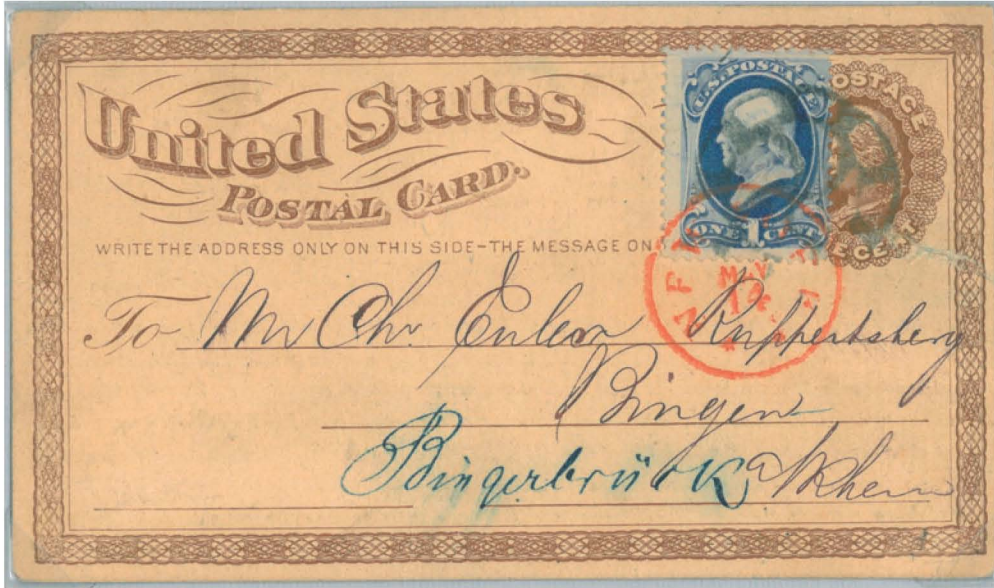 United States
POSTAL CARD.
U.S. POSTAGE
ONE 1 CENT
POSTAGE
CENT
WRITE THE ADDRESS ONLY ON THIS SIDE-THE MESSAGE ON
MAY
To Mr Chr. Euler Ruppertsberg
Bingen
Bingerbrück a/Rhein